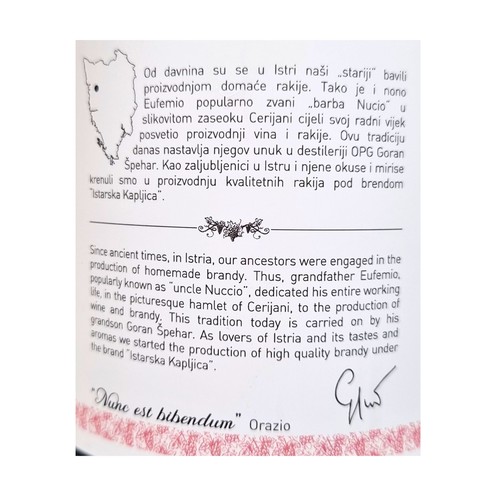 Od davnina su se u Istri naši „stariji” bavili
proizvodnjom domaće rakije. Tako je i nono
Eufemio popularno zvani „barba Nucio” u
slikovitom zaseoku Cerijani cijeli svoj radni vijek
posvetio proizvodnji vina i rakije. Ovu tradiciju
danas nastavlja njegov unuk u destileriji OPG Goran
Špehar. Kao zaljubljenici u Istru i njene okuse i mirise
krenuli smo u proizvodnju kvalitetnih rakija pod brendom
"Istarska Kapljica".
Since ancient times, in Istria, our ancestors were engaged in the
production of homemade brandy. Thus, grandfather Eufemio,
popularly known as "uncle Nuccio", dedicated his entire working
life, in the picturesque hamlet of Cerijani, to the production of
wine and brandy. This tradition today is carried on by his
grandson Goran Špehar. As lovers of Istria and its tastes and
aromas we started the production of high quality brandy under
the brand "Istarska Kapljica".
"Nunc est bibendum" Orazio